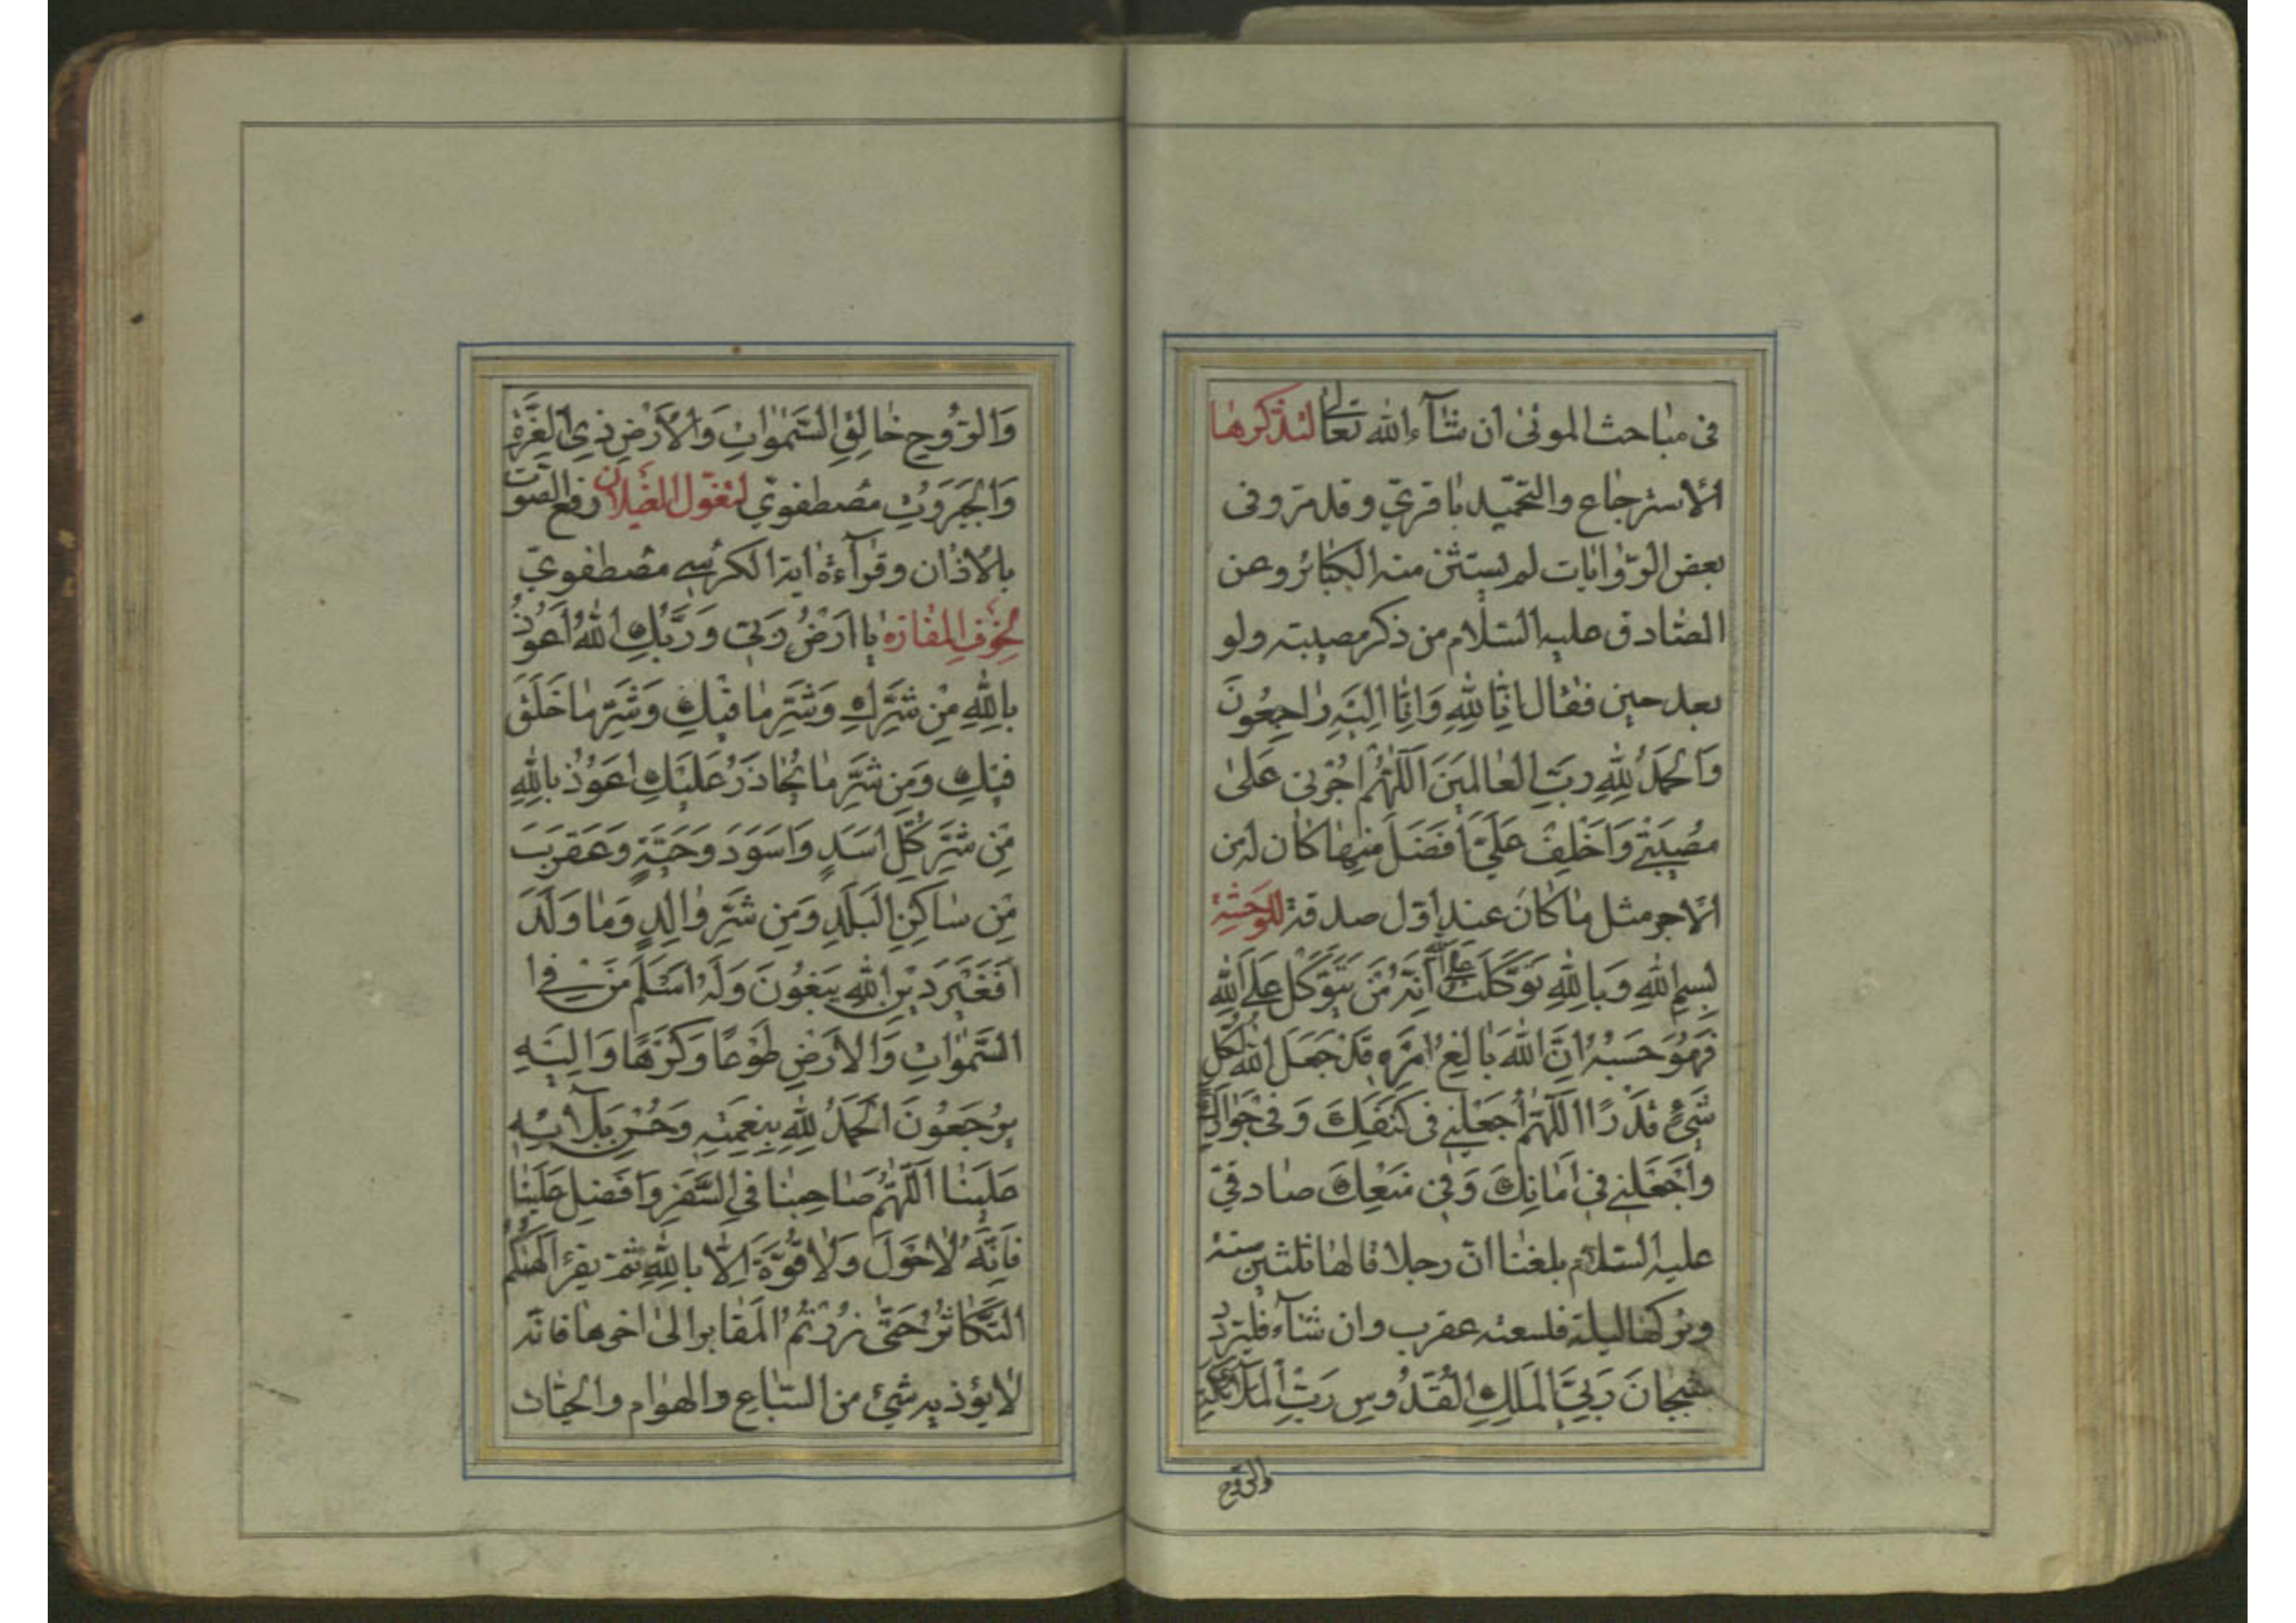 في مباحث الموتى ان شآء الله تعالى لتذكرها
الاسترجاع والتحميد باقري وقد مر وفى
بعض الروايات لم يستثن منه الكبائر وعن
الصادق عليه السلام من ذكر مصيبته ولو
بعد حين فقال اِنّا لِلّهِ وَاِنّا اِلَيْهِ راجِعُونَ
وَالْحَمْدُ لِلّهِ رَبِّ الْعالَمينَ اَللّهُمَّ اجُرْنى عَلى
مُصيبَتي وَاَخْلِفْ عَلَيَّ اَفْضَلَ مِنْها كان له من
الاجر مثل ما كانَ عند اوّل صدقة للوحشة
بِسمِ اللّهِ وَبِاللّهِ تَوَكَّلْتُ عَلَى اللّه اَنَّهُ مَنْ يَتَوَكَّلْ عَلَى اللّهِ
فَهُوَ حَسْبُهُ اِنَّ اللّهَ بالِغُ اَمْرِهِ قَدْ جَعَلَ اللّهُ لِكُلِّ
شَيْءٍ قَدْرًا اَللّهُمَّ اجْعَلْني فى كَنَفِكَ وَفى جَوارِكَ
وَاجْعَلْني في اَمانِكَ وَفى مَنْعِكَ صادقيّ
عليه السلام بلغنا انّ رجلا قالها ثلثين سنة
وتركها ليلة فلسعته عقرب وان شآء فليزد
سُبْحانَ رَبِّيَ الْمَلِكِ الْقُدُّوسِ رَبِّ الْمَلآئِكَةِ
والرّوح
وَالرُّوحِ خالِقِ السَّمواتِ وَالْاَرْضِ ذِي الْعِزَّةِ
وَالْجَبَرُوتِ مصطفوي لتغوّل الغيلان رفع الصّوت
بالاذان وقرآءة اية الكرسي مصطفوي
لِخَوْفِ المفازه يا اَرْضُ رَبّي وَرَبُّكِ اللّهُ اَعُوذُ
بِاللّهِ مِنْ شَرِّكِ وَشَرِّ ما فيكِ وَشَرِّ ما خَلَقَ
فيكِ وَمِنْ شَرِّ ما يُحاذَرُ عَلَيْكِ اَعُوذُ بِاللّهِ
مِنْ شَرِّ كُلِّ اَسَدٍ وَاَسْوَدَ وَحَيَّةٍ وَعَقْرَبَ
مِنْ ساكِنِ الْبَلَدِ وَمِنْ شَرِّ والِدٍ وَما وَلَدَ
اَفَغَيْرَ دينِ اللّهِ يَبْغُونَ وَلَهُ اَسْلَمَ مَنْ فِي ا
السَّمواتِ وَالْاَرْضِ طَوْعًا وَكَرْهًا وَاِلَيْهِ
يُرْجَعُونَ اَلْحَمْدُ لِلّهِ بِنِعْمَتِهِ وَحُسْنِ بَلآئِهِ
عَلَيْنا اَللّهُمَّ صاحِبْنا فِي السَّفَرِ وَاَفْضِلْ عَلَيْنا
فَاِنَّهُ لاحَوْلَ وَلا قُوَّةَ اِلّا بِاللّهِ ثمّ يقرء اَلْهيكُمُ
التَّكاثُرُ حَتّى زُرْتُمُ الْمَقابِرَ الى اخرها فانّه
لايؤذيه شيء من السّباع والهوام والحيّات